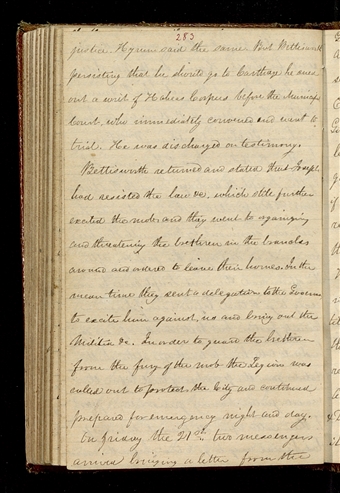 283
justice. Hyrum said the same. But Bettisworth
persisting that he should go to Carthage he sued
out a writ of Habeus Corpus before the Municipal
Court. who immediately convened and went to
trial. He was discharged on testimony.
Bettisworth returned and stated that Joseph
had resisted the law &c. which still further
excited the mob. and they went to
and threatening the brethren in the branches
around and ordered to leave their homes. In the
mean time they sent a delegation to the Governor
to excite him against us and bring out the
Militia &c. In order to guard the brethren
from the fury of the mob the Legion was
called out to protect the City and continued
prepared for emergency night and day.
On friday the 21st. two messengers
arrived bringing a letter from the